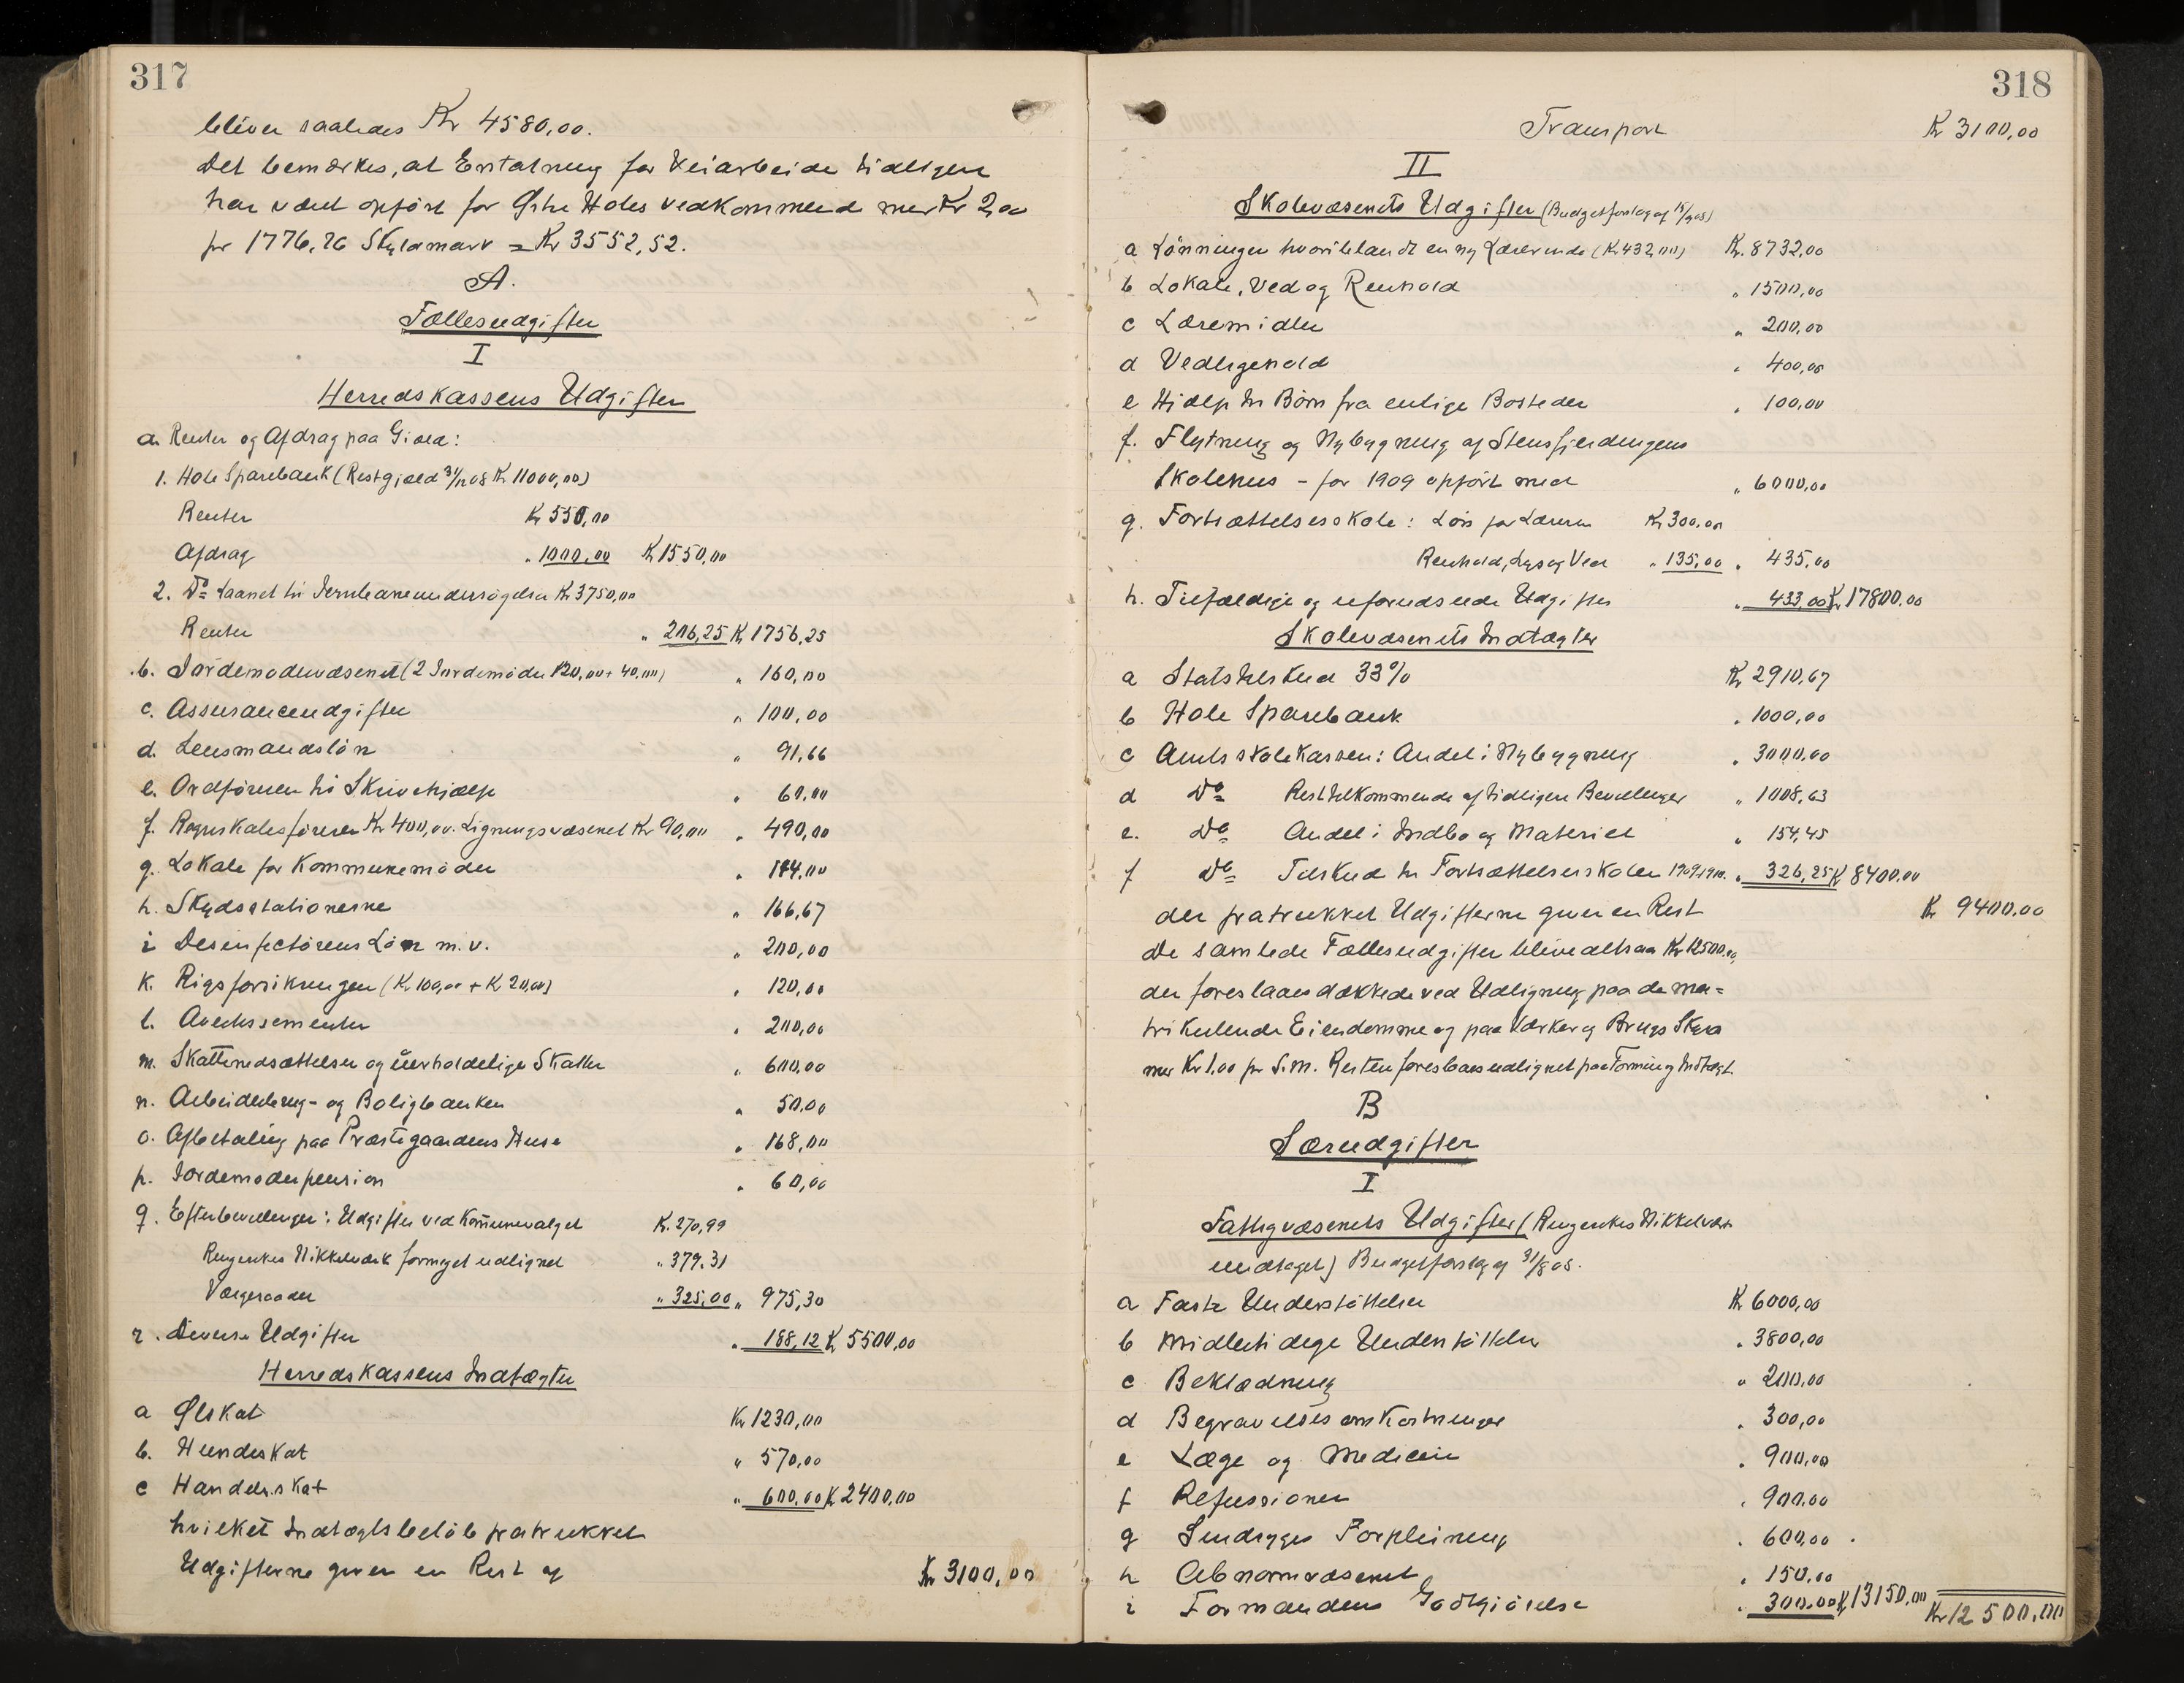 317
bliver saaledes Kr 4580,00.
Det bemærkes, at Erstatning for Veiarbeide tidligere
har været opført for Østre Holes vedkommende mer Kr 2,00
pr 1776,26 Skyldmark = Kr 3552,52.
A.
Fællesudgifter
I
Herredskassens Udgifter
a. Renter og Afdrag paa Gjæld:
1. Hole Sparebank (Restgjæld 31/12 08 Kr 11000,00)
Renter Kr 550,00
Afdrag " 1000,00 Kr 1550,00
2. Do Laanet til Jernbaneundersøgelsen Kr 3750,00
Renter " 206,25 Kr 1756,25
b. Jordemodervæsenet (2 Jordemødre 120,00 + 40,00) " 160,00
c. Assuranceudgifter " 100,00
d. Lensmandsløn " 91,66
e. Ordføreren til Skrivehjælp " 60,00
f. Regnskabsføreren Kr 400,00. Ligningsvæsenet Kr 90,00 " 490,00
g. Lokale for Kommunemøder " 144,00
h. Skydsstationerne " 166,67
i Desinfectørens Løn m.v. " 200,00
k. Rigsforsikringen (Kr 100,00 + Kr 20,00) " 120,00
l. Avertissementer " 200,00
m. Skattenedsættelser og uerholdelige Skatter " 600,00
n. Arbeiderbrug- og Boligbanken " 50,00
o. Afbetaling paa Præstegaardens Huse " 168,00
p. Jordemoderpension " 60,00
q. Efterbevilgninger: Udgifter ved Kommunevalget Kr. 270,99
Ringerikes Nikkelværk formeget udlignet " 379,31
Vergeraadet " 325,00 " 975,30
r. Diverse Udgifter " 188,12 Kr 5500,00
Herredskassens Indtægter
a Ølskat Kr 1230,00
b. Hundeskat " 570,00
c Handelsskat " 600,00 Kr 2400,00
hvilket Indtægtsbeløb fratrukket
Udgifterne giver en Rest af Kr 3100,00
318
Transport Kr 3100,00
II
Skolevæsenets Udgifter (Budgetforslag af 15/9 08)
a Lønninger hvoriblandt en ny Lærerinde (Kr 432,00) Kr. 8732,00
b Lokale, Ved og Renhold " 1500,00
c Læremidler " 200,00
d Vedligehold " 400,00
e Hjælp til Børn fra enlige Bosteder " 100,00
f. Flytning og Nybygning af Stensfjerdingens
Skolehus – for 1909 opført med " 6000,00
g. Fortsættelsesskole: Løn for Læreren Kr 300,00
Renhold, Lys og Ved " 135,00 " 435,00
h. Tilfældige og uforudseede Udgifter " 433,00 Kr 17800,00
Skolevæsenets Indtægter
a Statstilskud 33% Kr 2910,67
b Hole Sparebank " 1000,00
c Amtsskolekassen: Andel i Nybygning " 3000,00
d Do Resttilkommende af tidligere Bevilgninger " 1008,63
e. Do Andel i Indbo og Materiel " 154,45
f Do Tilskud til Fortsættelsesskolen 1909-1910. " 326,25 Kr 8400,00
der fratrukket Udgifterne giver en Rest Kr 9400,00
De samlede Fællesudgifter bliver altsaa Kr 12500,00,
der foreslaaes dækkede ved Udligning paa de ma=
trikulerede Eiendomme og paa Værker og Brugs Skyld
mer Kr 1,00 pr S.m. Resten foreslaaes udlignet paa Formue og Indtægt.
B
Særudgifter
I
Fattigvæsenets Udgifter (Ringerikes Nikkelværk
undtaget) Budgetforslag af 31/8 08.
a Faste Understøttelser Kr 6000,00
b Midlertidige Understøttelser " 3800,00
c Beklædning " 200,00
d Begravelsesomkostninger " 300,00
e Læge og Medicin " 900,00
f Refusioner " 900,00
g Sindssyges Forpleining " 600,00
h Abnormvæsenet " 150,00
i Formandens Godtgjørelse " 300,00 Kr 13150,00 Kr 12500,00